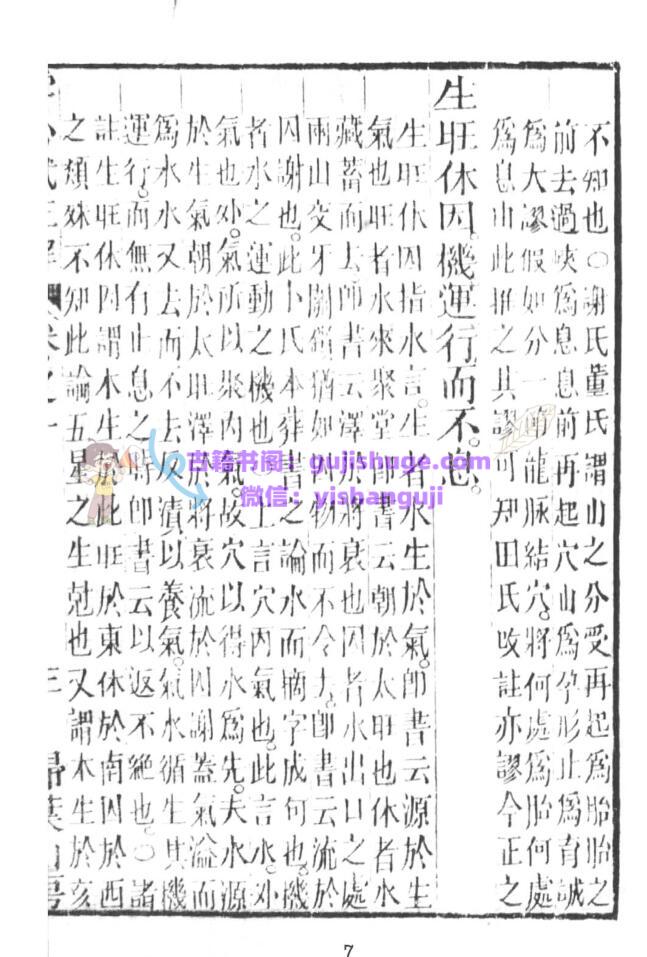 不知也〇謝氏董氏謂山之分受再起爲胎胎之
前去過峽爲息息前再起穴山爲孕形止爲育誠
爲大謬假如分一節龍脉結穴將何處爲胎何處
爲息由此推之其謬可知田氏改註亦謬今正之
生旺休囚機運行而不息
生旺休囚指水言生者水生於氣卽書云源於生
氣也旺者水來聚堂卽書云朝於太旺也休者水
藏蓄而去卽書云澤於將衰也囚者水出口之處
兩山交牙關鎖猶如囚物而不令去卽書云流於
囚謝也此卜氏本葬書之論水而摘字成句也機
者水之運動之機也上言穴内氣也此言水外
氣也外氣所以聚内氣故穴以得水爲先夫水源
於生氣朝於太旺澤於將衰流於囚謝蓋氣溢而
爲水水又去而不去反瀆以養氣氣水循生其機
運行而無有止息之時卽書云以返不絶也〇諸
註生旺休囚謂木生於此旺於東休於南囚於西
之類殊不知此論五星之生尅也又謂木生於亥
三
7
古籍书阁：gujishuge.com
微信：yishanguji